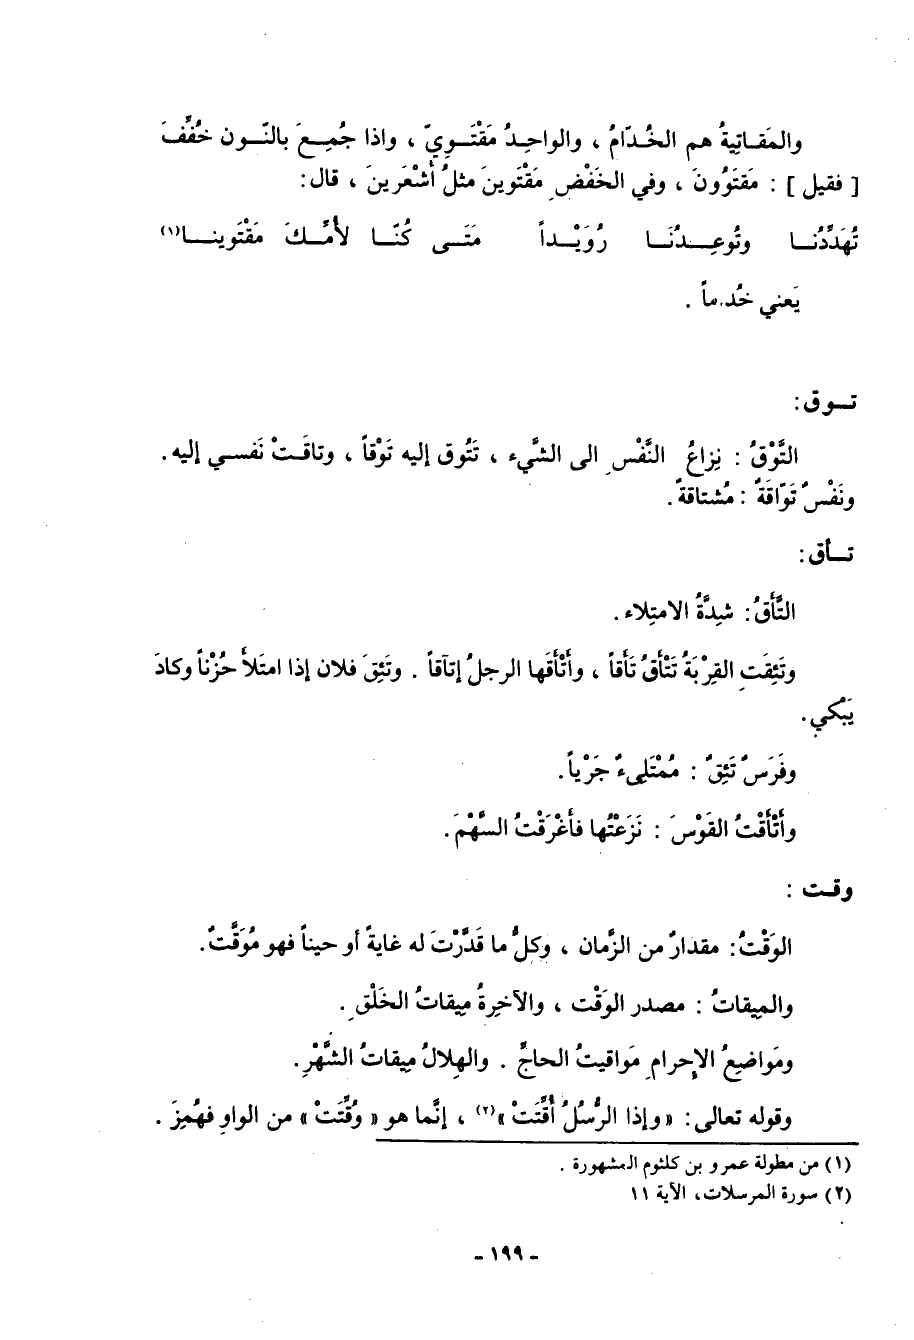 والمَقـاتِيةُ هم الخُـدّامُ ، والواحِـدُ مَقْتَـوِيّ ، واذا جُمِـعَ بالنّـون خُفِّفَ
[ فقيل ] : مَقتَوُونَ ، وفي الخَفْضِ مَقْتَوينَ مثلُ أشْعَرينَ ، قال:
تُهَدِّدُنـا وتُوعِـدُنَـا رُوَيْـداً مَتَـى كُنّـا لأُمِّـكَ مَقْتَوينـا(١)
يَعني خُدماً .
تـوق:
التَّوْقُ : نِزاعُ النَّفْسِ الى الشَّيء ، تَتُوق إليه تَوْقاً ، وتاقَـتْ نَفسـي إليه.
ونَفْسٌ تَوّاقَةٌ : مُشتاقةٌ.
تـأق:
التَّأَقُ: شِدَّةُ الامتِلاء.
وتَئِقَتِ القِرْبَةُ تَتْأَقُ تَأَقاً ، وأَتْأَقَها الرجلُ إتآقاً . وتَئِقَ فلان إذا امتَلأَ حُزْناً وكادَ
يَبْكي.
وفَرَسٌ تَئِقٌ : مُمْتَلِىءٌ جَرْياً.
وأَتْأَقْتُ القَوْسَ : نَزَعْتُها فأَغْرَقْتُ السَّهْمَ.
وقـت :
الوَقْتُ: مقدارٌ من الزَّمان ، وكلُّ ما قَدَّرْتَ له غايةً أو حيناً فهو مُوَقَّتٌ.
والمِيقاتُ : مصدر الوَقْت ، والآخِرةُ مِيقاتُ الخَلْقِ.
ومَواضِعُ الإحرامِ مَواقيتُ الحاجِّ . والهِلالُ مِيقاتُ الشَّهْرِ.
وقوله تعالى: «وإذا الرُّسُلُ أُقِّتَتْ»(٢) ، إنَّما هو « وُقِّتَتْ» من الواوِ فهُمِزَ .
(١) من مطولة عمرو بن كلثوم المشهورة .
(٢) سورة المرسلات، الآية ١١
- ١٩٩ -